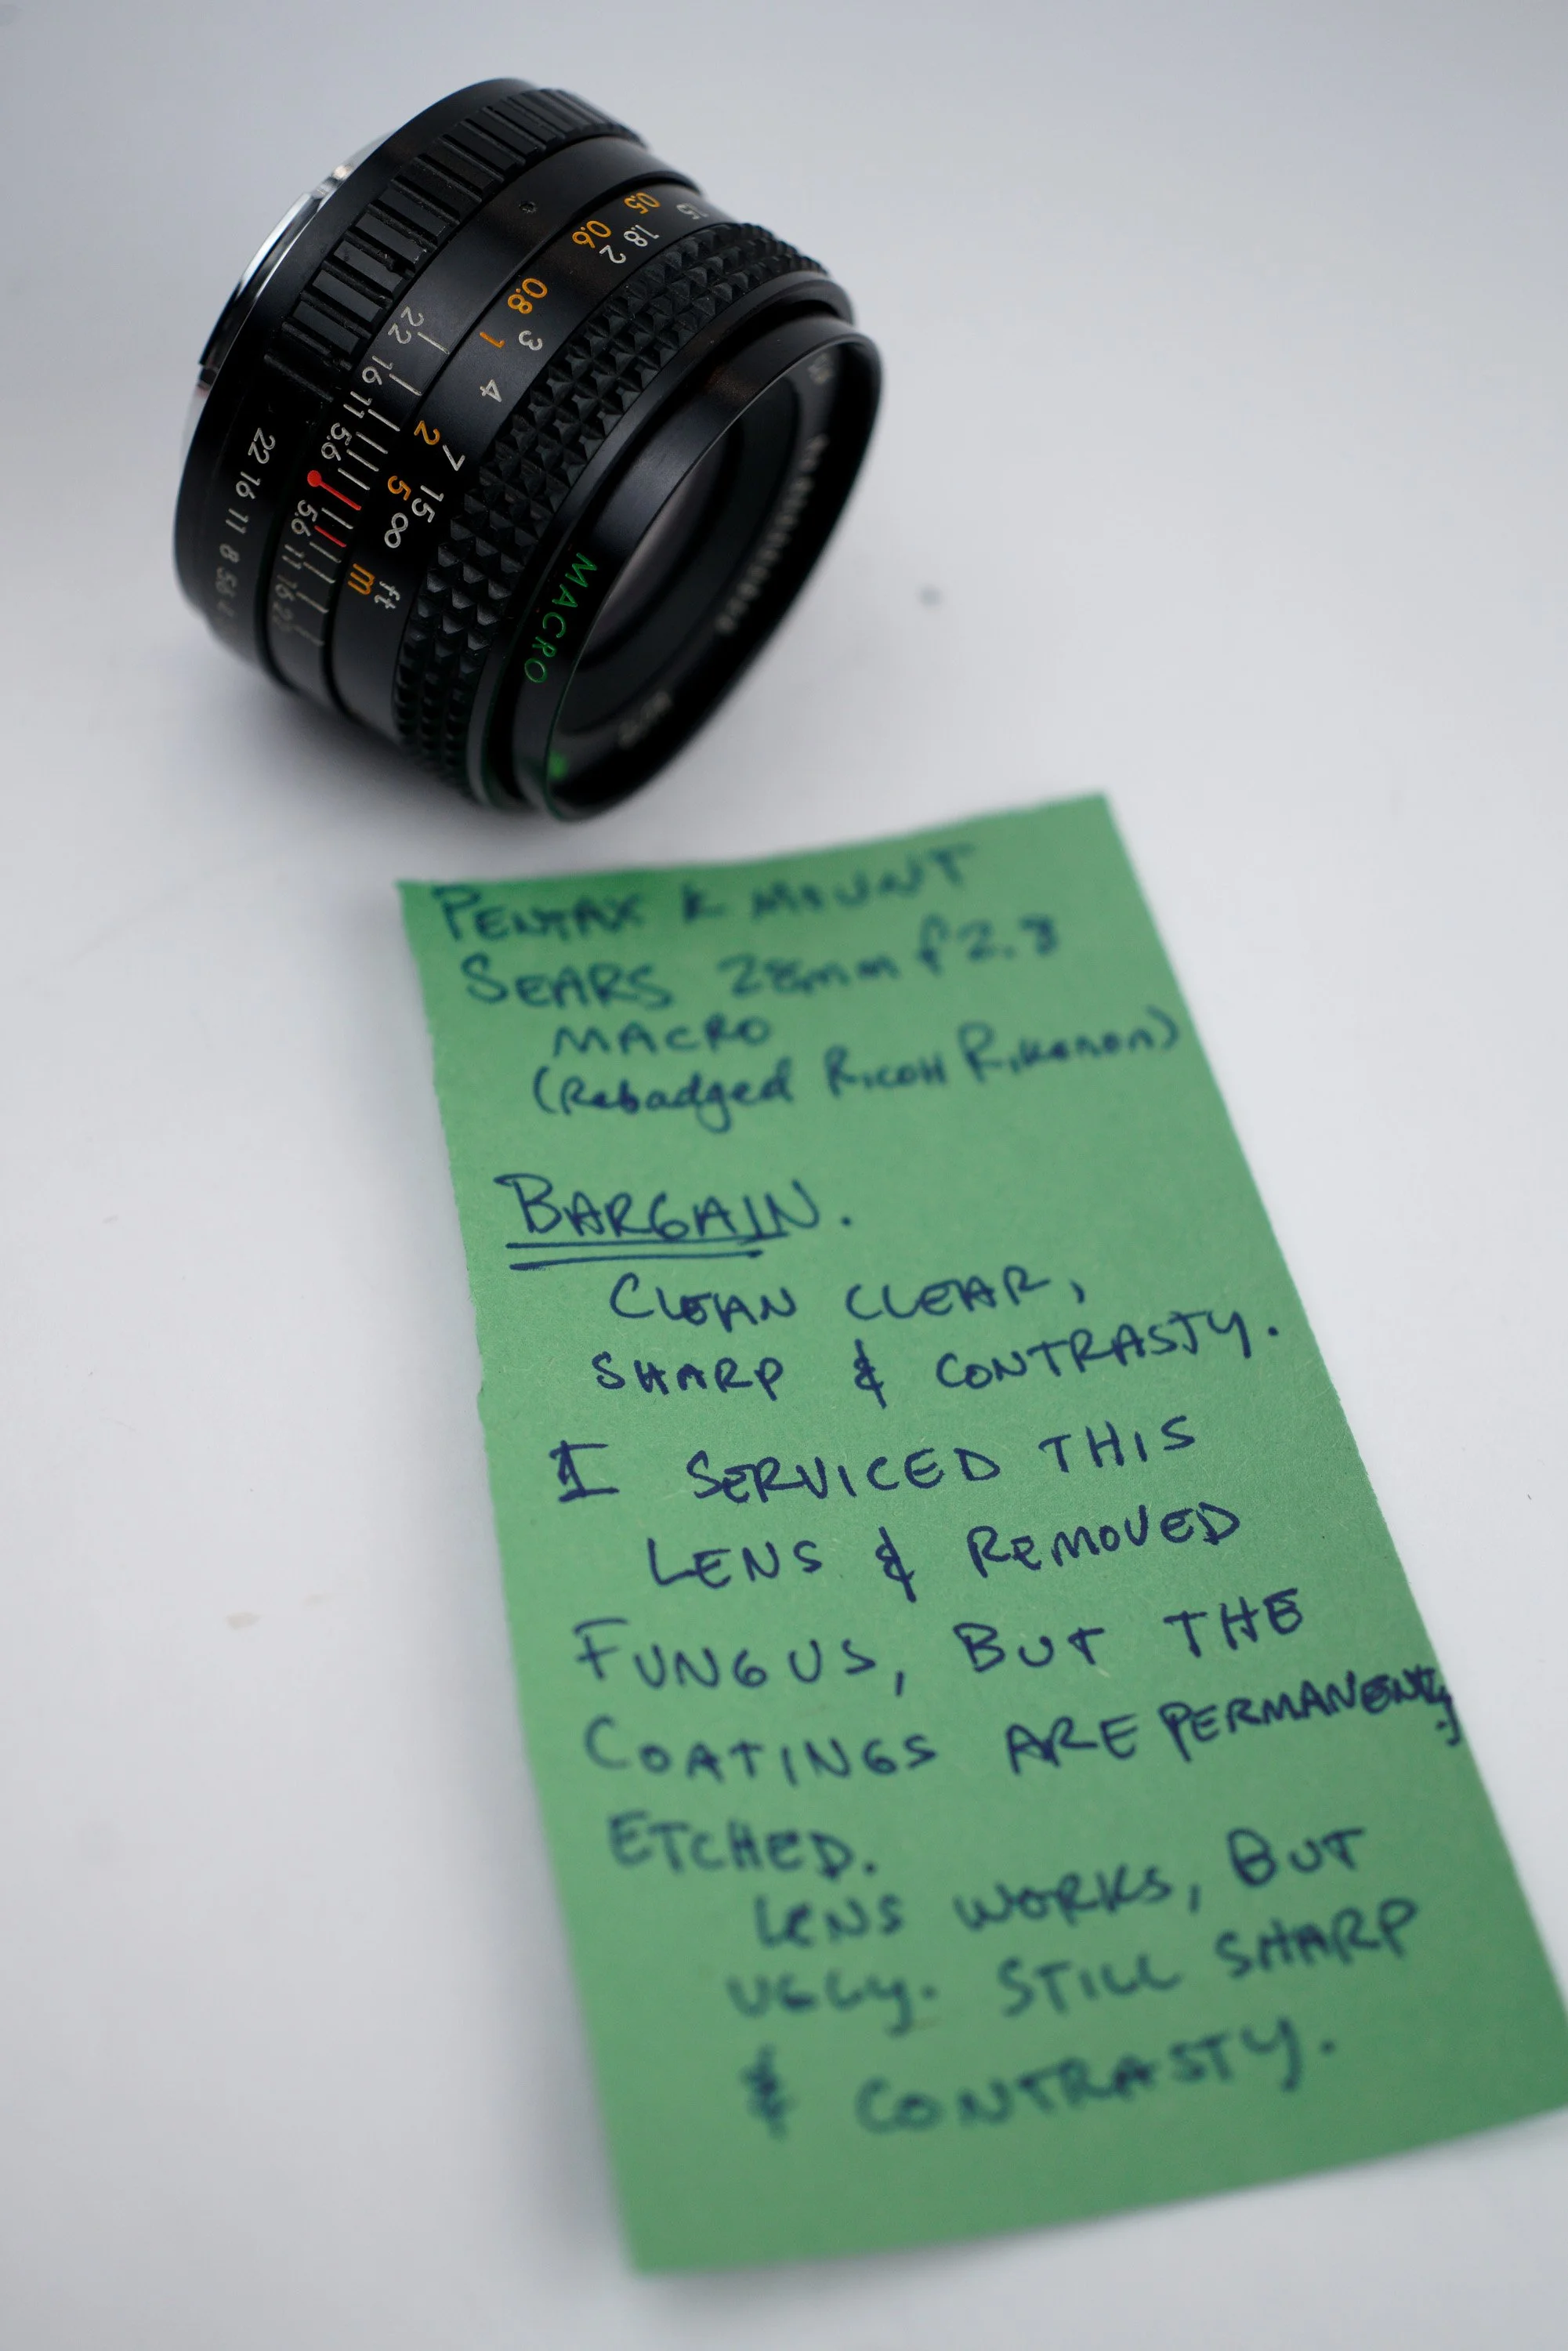 22 16 11 8 5.6 4
22 16 11 5.6 5.6 11 16 22
0.5 0.6 0.8 1 2 5 m
1.5 1.8 2 3 4 7 15 ∞ ft
MACRO
PENTAX K MOUNT
SEARS 28mm f2.8
MACRO
(Rebadged RICOH Rikenon)
BARGAIN.
CLEAN CLEAR,
SHARP & CONTRASTY.
I SERVICED THIS
LENS & REMOVED
FUNGUS, BUT THE
COATINGS ARE PERMANENTLY
ETCHED.
LENS WORKS, BUT
UGLY. STILL SHARP
& CONTRASTY.